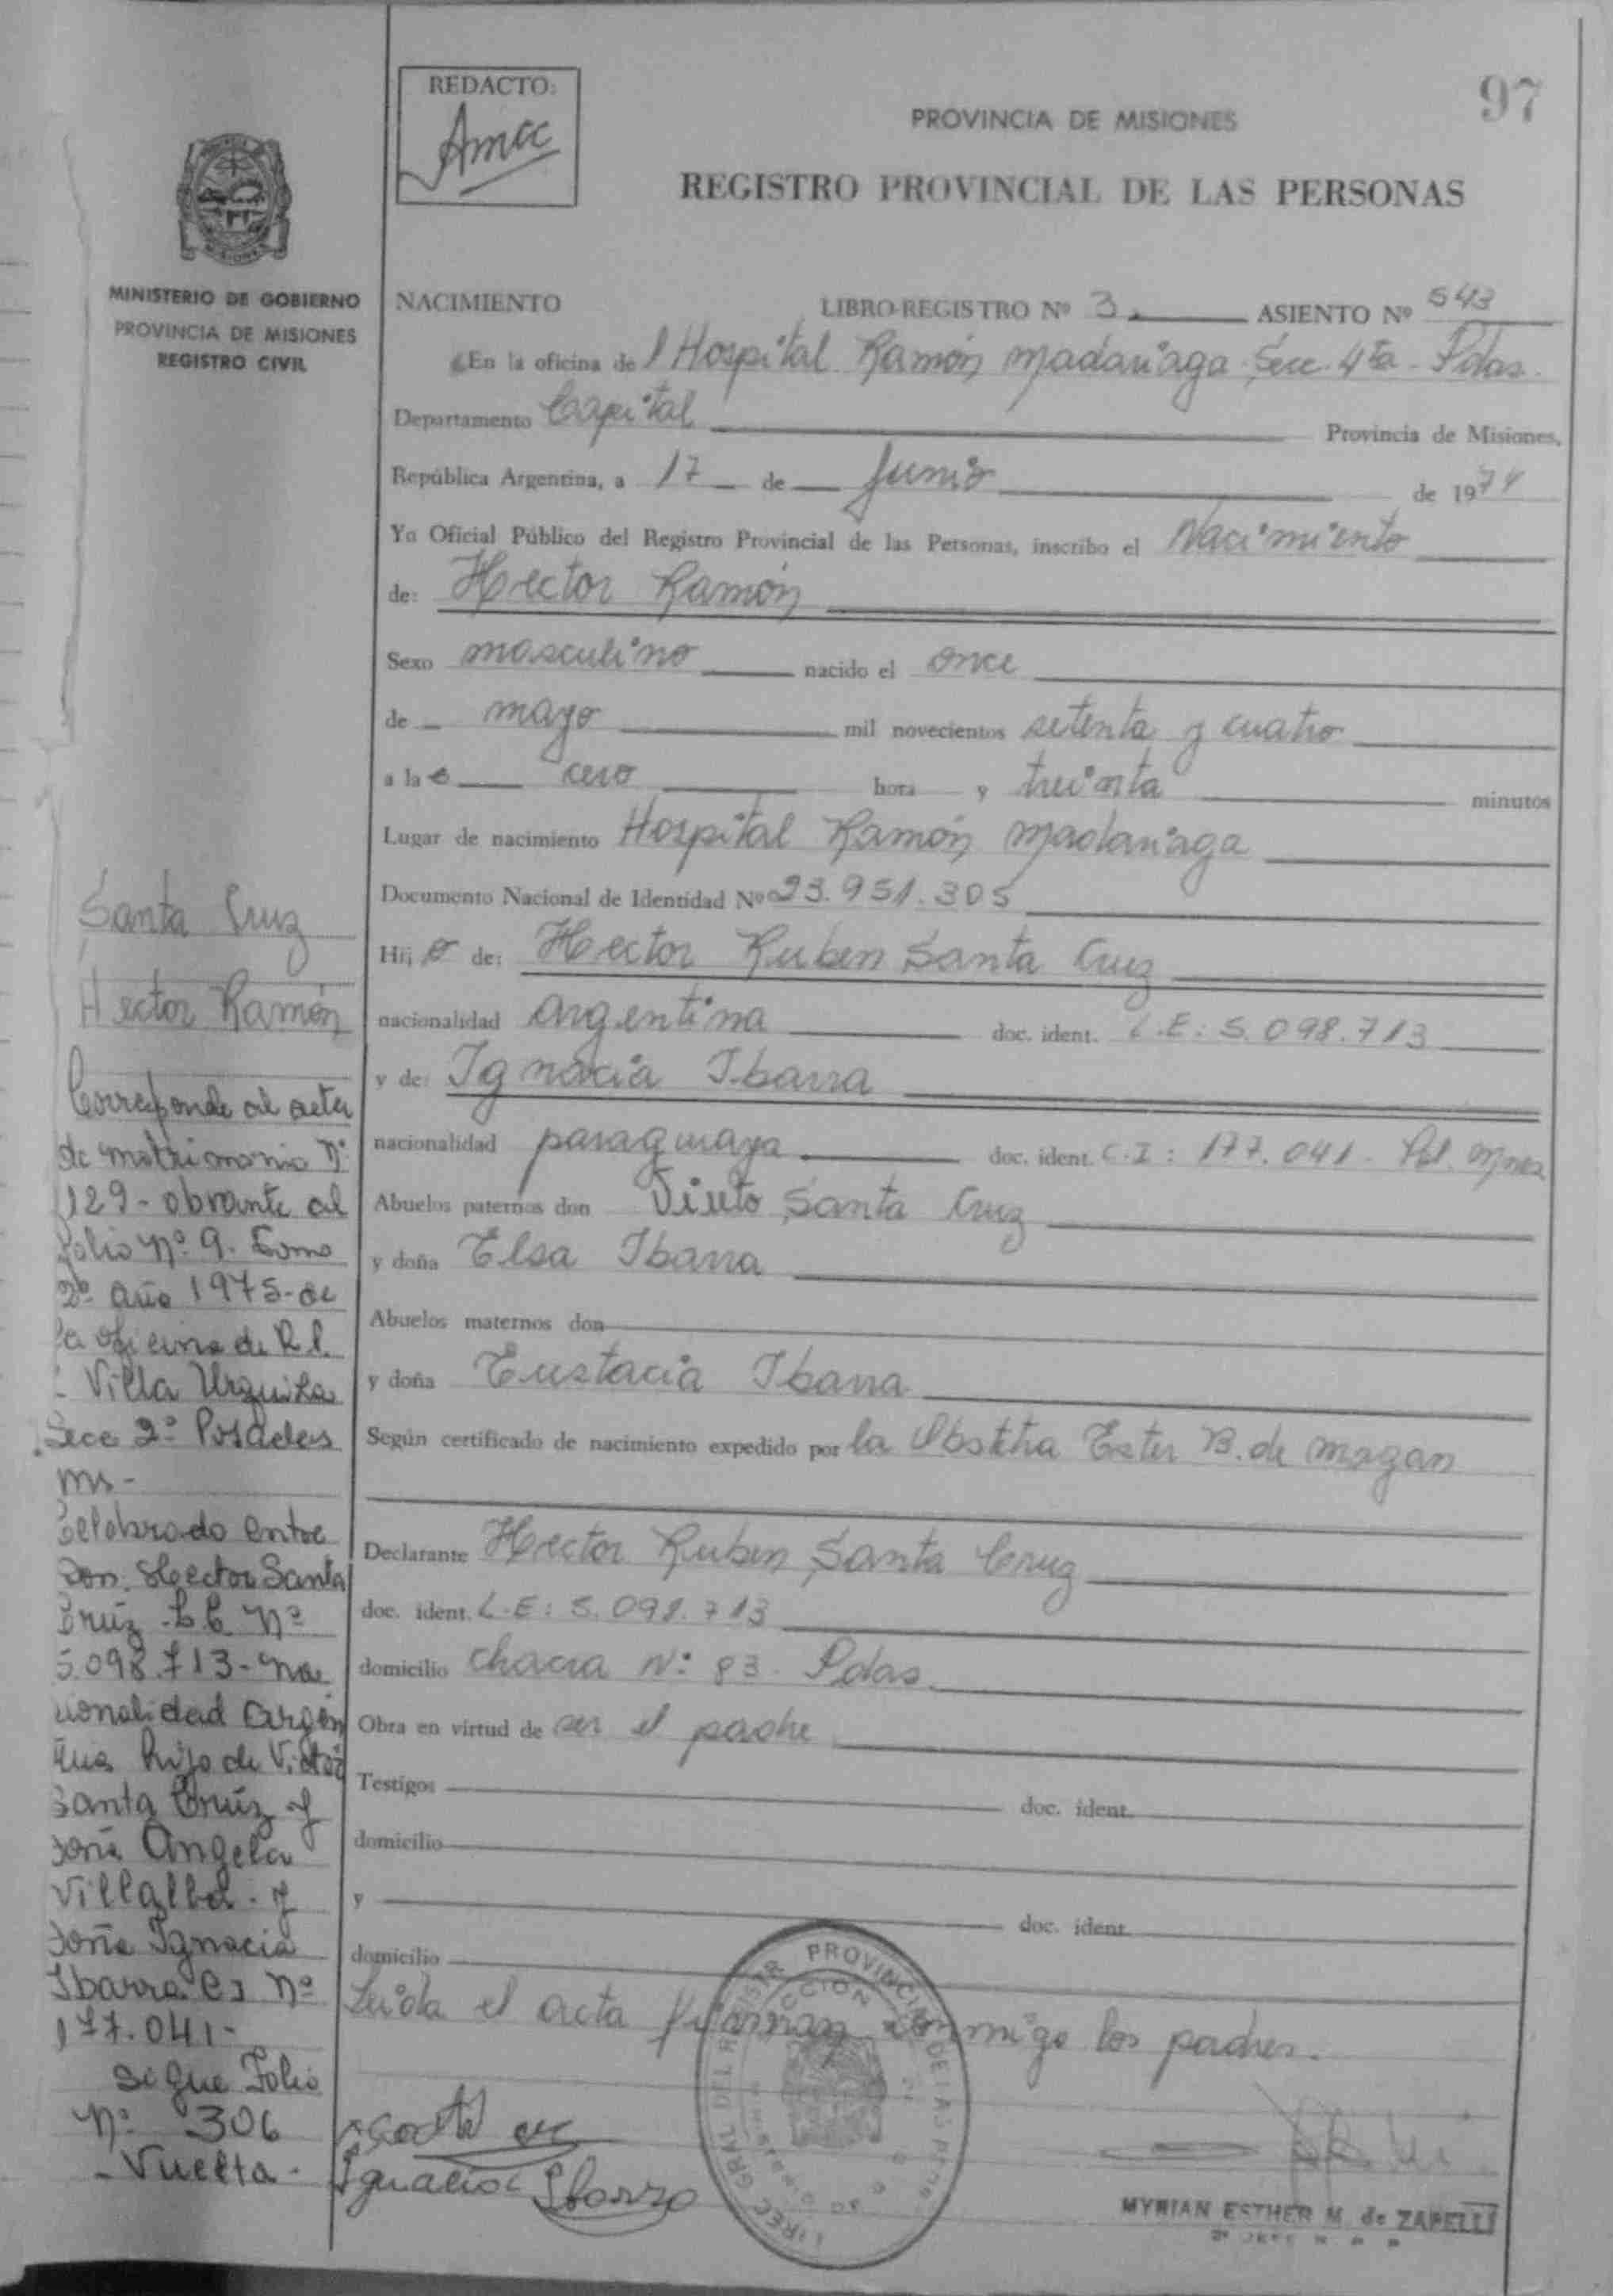 REDACTO:
97
PROVINCIA DE MISIONES
REGISTRO PROVINCIAL DE LAS PERSONAS
MINISTERIO DE GOBIERNO
PROVINCIA DE MISIONES
REGISTRO CIVIL
NACIMIENTO LIBRO-REGISTRO Nº 3 ASIENTO Nº 543
En la oficina de l Hospital Ramón Madariaga Secc. 4ta - Pdas.
Departamento Capital Provincia de Misiones,
República Argentina, a 17 de Junio de 1974
Yo Oficial Público del Registro Provincial de las Personas, inscribo el Nacimiento
de: Hector Ramón
Sexo masculino nacido el once
de mayo mil novecientos setenta y cuatro
a la cero hora y treinta minutos
Lugar de nacimiento Hospital Ramón Madariaga
Documento Nacional de Identidad Nº 23.951.305
Hijo de: Hector Ruben Santa Cruz
nacionalidad argentina doc. ident. L.E: 5.098.713
y de: Ignacia Ibarra
nacionalidad paraguaya doc. ident. C.I: 177.041. Pol. Mnes
Abuelos paternos don Santa Cruz
y doña Elsa Ibarra
Abuelos maternos don
y doña Eustacia Ibarra
Según certificado de nacimiento expedido por la Obstetra Ester B. de Magan
Declarante Hector Ruben Santa Cruz
doc. ident. L.E: 5.098.713
domicilio Chacra Nº 83. Pdas.
Obra en virtud de ser el padre
Testigos doc. ident.
domicilio
y doc. ident.
domicilio
Leída el acta firman conmigo los padres.
Ignacia Ibarra
MYRIAN ESTHER M. de ZAPELLI
Santa Cruz
Hector Ramón
Corresponde al acta
de matrimonio Nº
129 - obrante al
folio Nº 9. Tomo
2º año 1975 - de
la oficina de R.C.
Villa Urquiza
Secc 2º Posadas
Ms -
Celebrado entre
Don. Hector Santa
Cruz - L.E. Nº
5.098.713 - Na
cionalidad Argen
tina hijo de Victor
Santa Cruz y
doña Angela
Villalba - y
doña Ignacia
Ibarra CI Nº
177.041 -
Sigue Folio
Nº 306
- Vuelta -